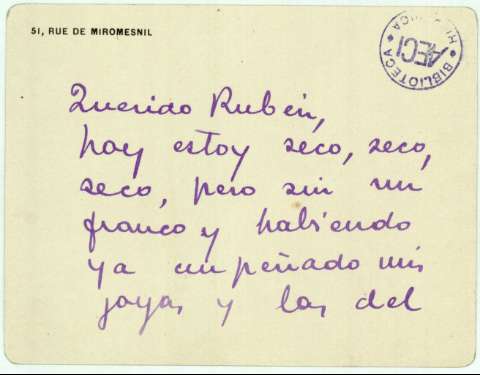 51, RUE DE MIROMESNIL
BIBLIOTECA
HISPANICA
AECI
Querido Rubén,
hoy estoy seco, seco,
seco, pero sin un
franco y habiendo
ya empeñado mis
joyas y las del